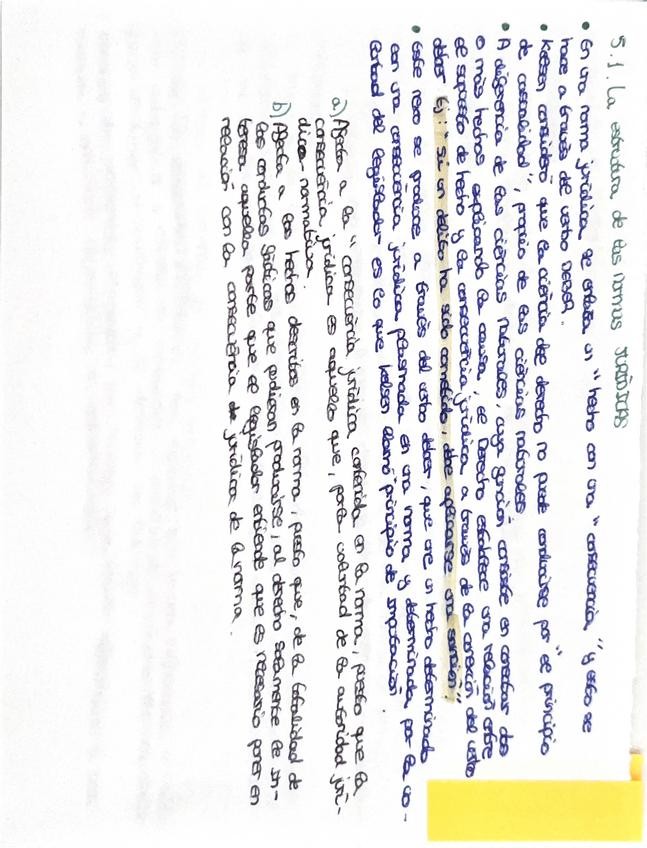 5.1. La estructura de las normas JURÍDICAS
• En una norma jurídica se enlaza un "hecho con una "consecuencia" y esto se
hace a través del verbo DEBER.
• Kelsen consideró que la ciencia del derecho no puede conducirse por "el principio
de causalidad", propio de las ciencias naturales.
• A diferencia de las ciencias naturales, cuya función consiste en conectar dos
o más hechos explicando la causa, el Derecho establece una relación entre
el supuesto de hecho y la consecuencia jurídica a través de la conexión del verbo
deber. Ej: "Si un delito ha sido cometido, debe aplicarse una sanción"
• Este nexo se produce a través del verbo deber, que une un hecho determinado
con una consecuencia jurídica plasmada en una norma y determinada por la vo-
luntad del legislador es lo que Kelsen llamó principio de imputación.
a) Afecta a la "consecuencia jurídica contenida en la norma, puesto que la
consecuencia jurídica es aquello que, por la voluntad de la autoridad jurí-
dica-normativa.
b) Afecta a los hechos descritos en la norma, puesto que, de la totalidad de
las conductas fácticas que pudiesen producirse, al derecho solamente le in-
teresa aquella parte que el legislador entiende que es necesario poner en
relación con la consecuencia de jurídica de la norma.